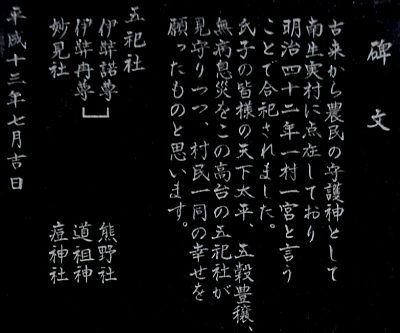 碑文
古来から農民の守護神として
南生実村に点在しており
明治四十二年一村一宮と言う
ことで合祀されました。
氏子の皆様の天下太平、五穀豊穣、
無病息災をこの高台の五祀社が
見守りつつ、村民一同の幸せを
願ったものと思います。
五祀社
伊弉諾尊 熊野社
伊弉冉尊 道祖神
妙見社 疱神社
平成十三年七月吉日